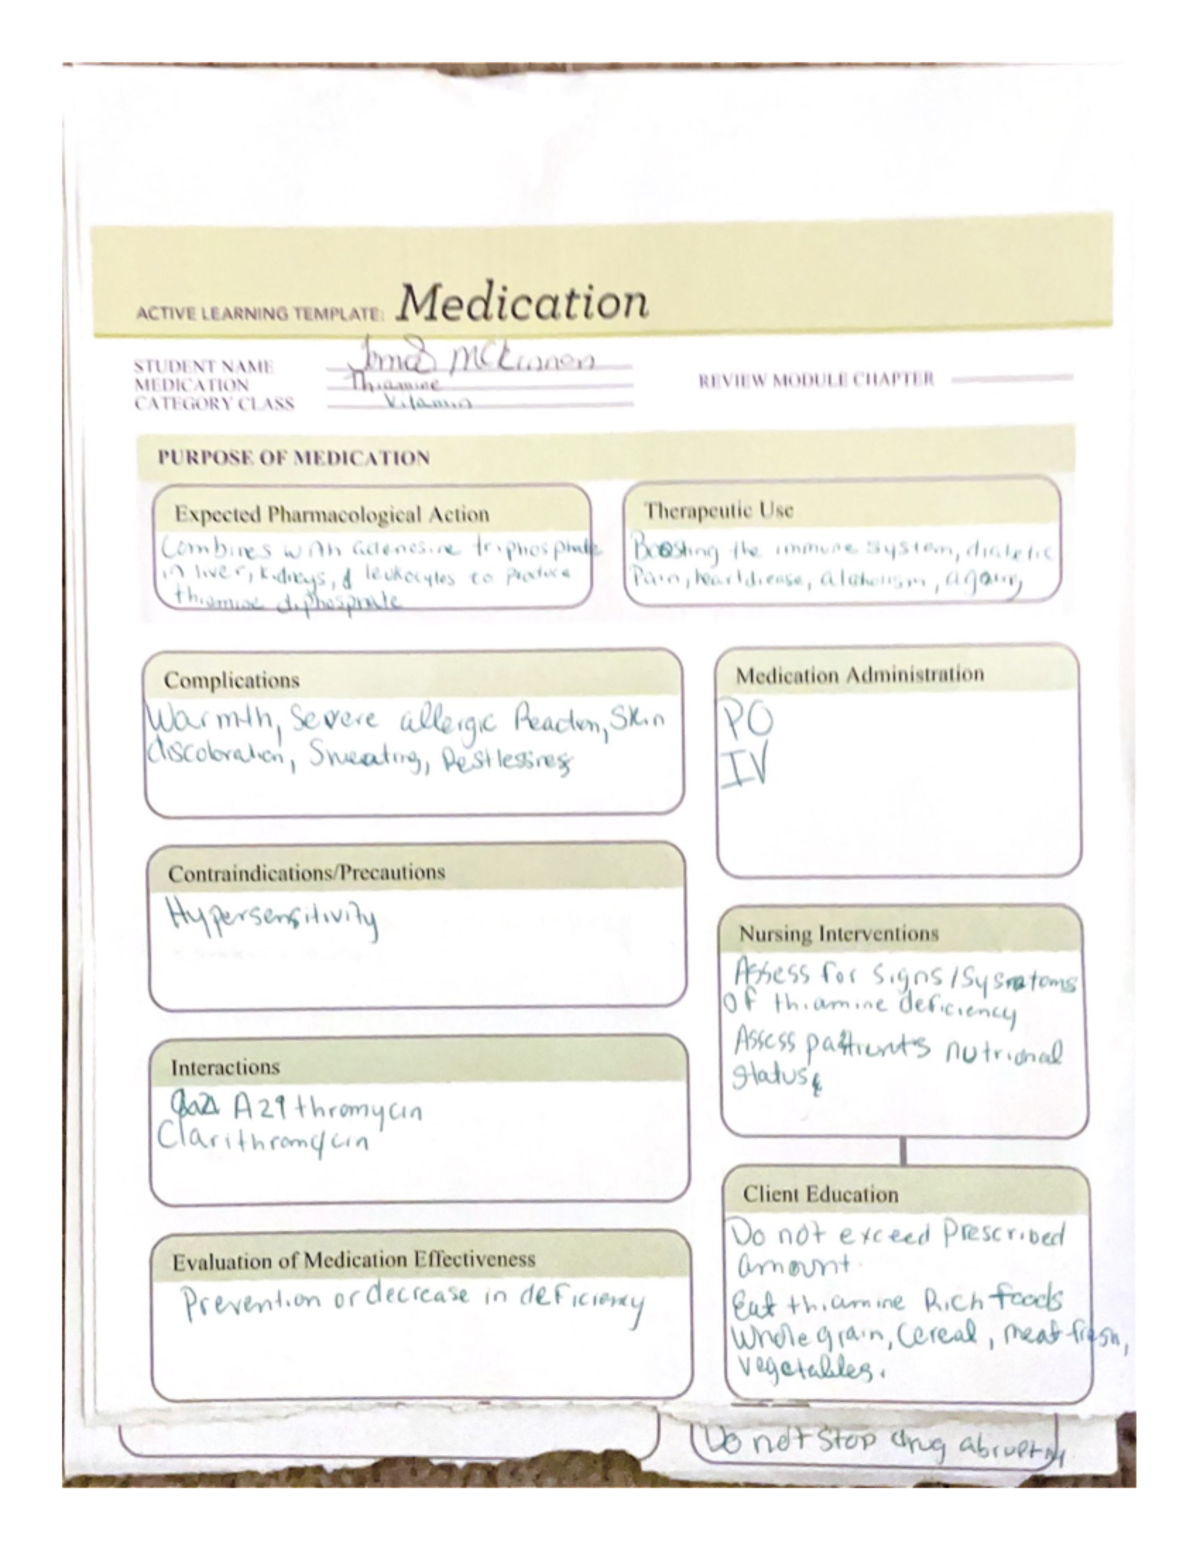 ACTIVE LEARNING TEMPLATE: Medication
STUDENT NAME McKinnon
MEDICATION Thiamine
CATEGORY CLASS Vitamin
REVIEW MODULE CHAPTER
PURPOSE OF MEDICATION
Expected Pharmacological Action
Combines with adenosine triphosphate
in liver, kidneys, & leukocytes to produce
thiamine diphosphate
Therapeutic Use
Boosting the immune system, diabetic
Pain, heart disease, alcoholism, aging
Complications
Warmth, Severe allergic Reaction, Skin
discoloration, Sweating, Restlessness
Medication Administration
PO
IV
Contraindications/Precautions
Hypersensitivity
Nursing Interventions
Assess for signs/
of thiamine deficiency
Assess patients nutrional
status
Interactions
Clarithromycin
Client Education
Do not exceed Prescribed
amount.
Eat thiamine Rich foods
Whole grain, Cereal, meat fresh,
vegetables.
Evaluation of Medication Effectiveness
Prevention or decrease in deficiency
Do not stop drug abruptly